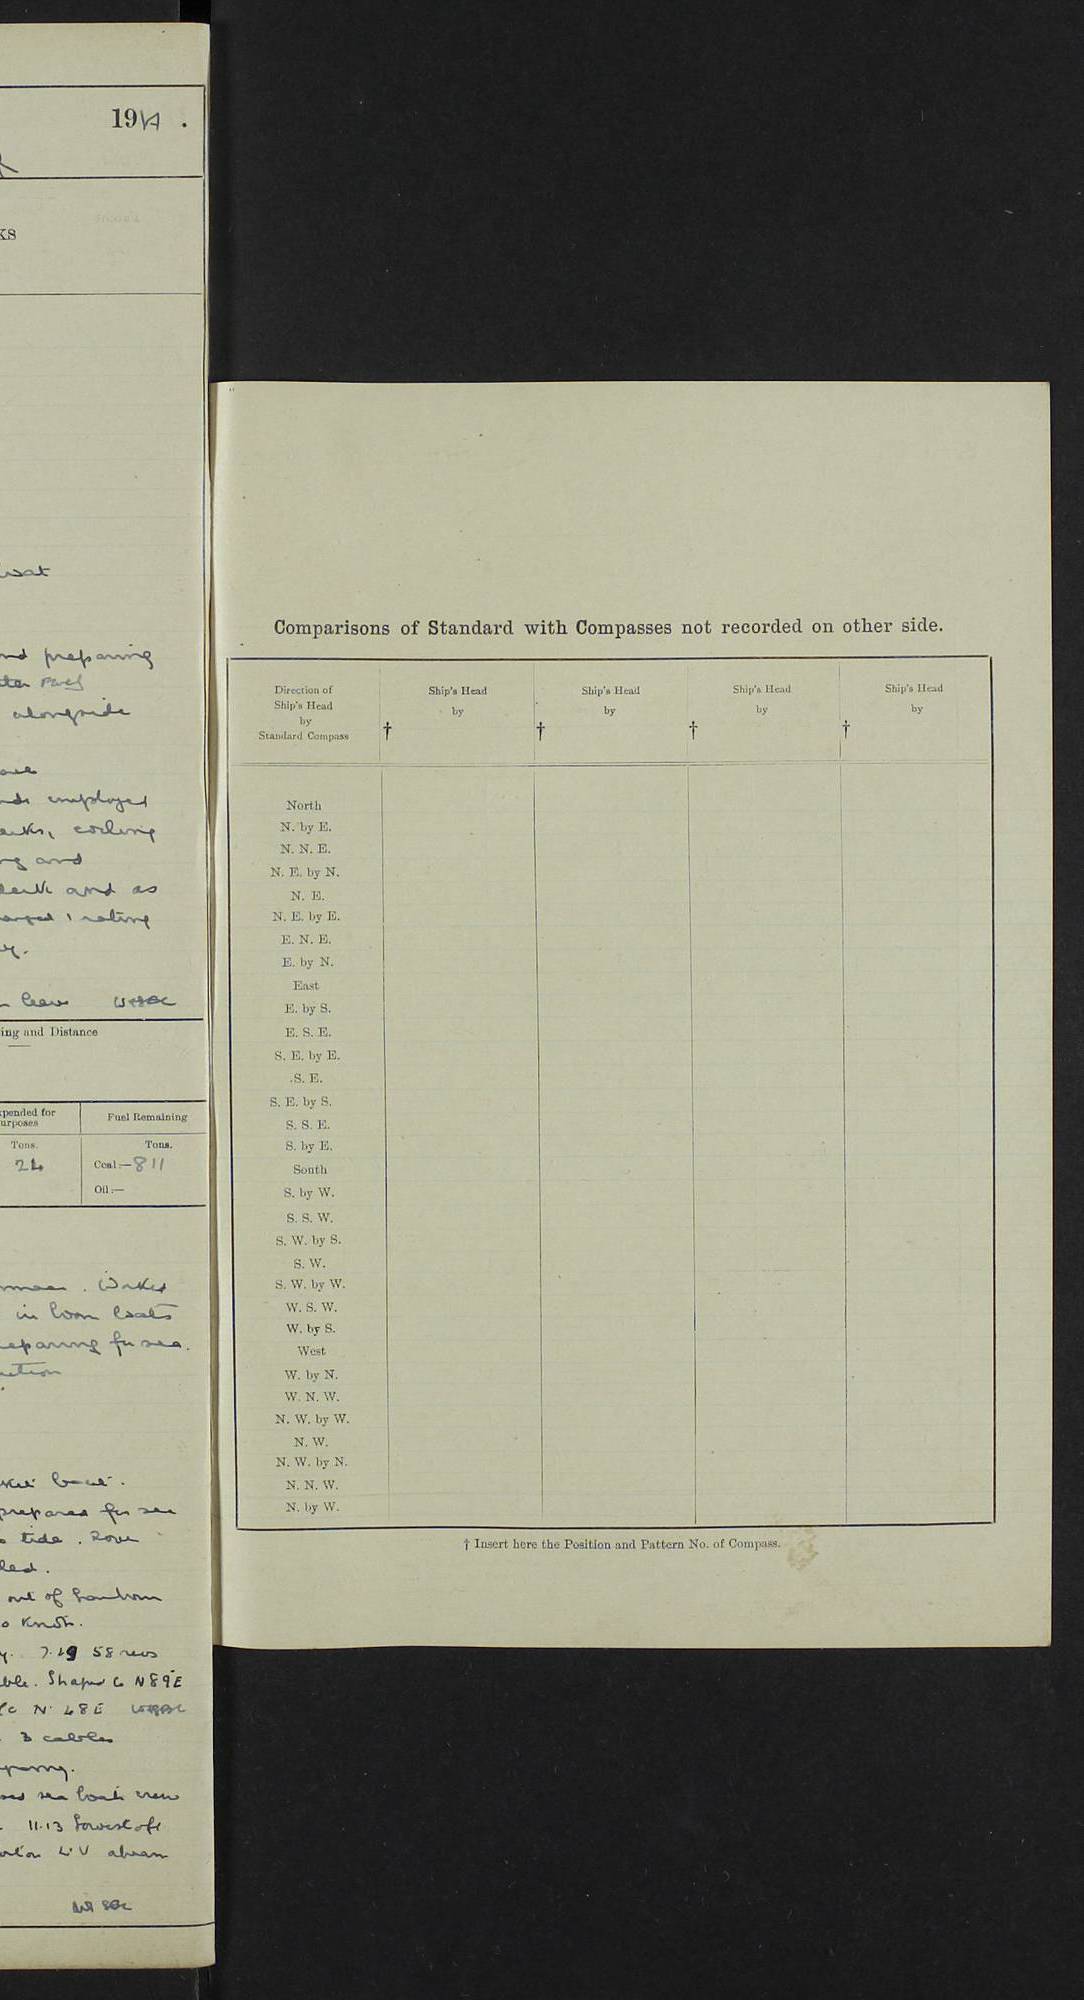 19
ks
nd preparing
alongside
employed
coaling
and
and as
1 rating
leave
ing and Distance
xpended for
urposes
Fuel Remaining
Tons.
Tons.
24
Coal:— 811
Oil:—
in boats
eparing for sea.
prepared for sea
tide.
out of
o Knots.
7.19 58 revs
ble. Shaped Co N89E
N 48E
3 cables
sea boats crew
11.13 Lowestoft
L.V abeam
Comparisons of Standard with Compasses not recorded on other side.
Direction of
Ship's Head
by
Standard Compass
Ship's Head
by
†
Ship's Head
by
†
Ship's Head
by
†
Ship's Head
by
†
North
N. by E.
N. N. E.
N. E. by N.
N. E.
N. E. by E.
E. N. E.
E. by N.
East
E. by S.
E. S. E.
S. E. by E.
S. E.
S. E. by S.
S. S. E.
S. by E.
South
S. by W.
S. S. W.
S. W. by S.
S. W.
S. W. by W.
W. S. W.
W. by S.
West
W. by N.
W. N. W.
N. W. by W.
N. W.
N. W. by N.
N. N. W.
N. by W.
† Insert here the Position and Pattern No. of Compass.